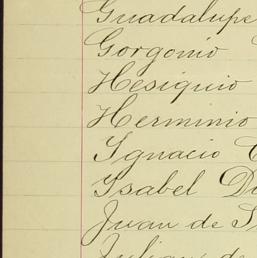 Guadalupe
Gorgonio
Hesiquio
Herminio
Ignacio
Ysabel
Juan de